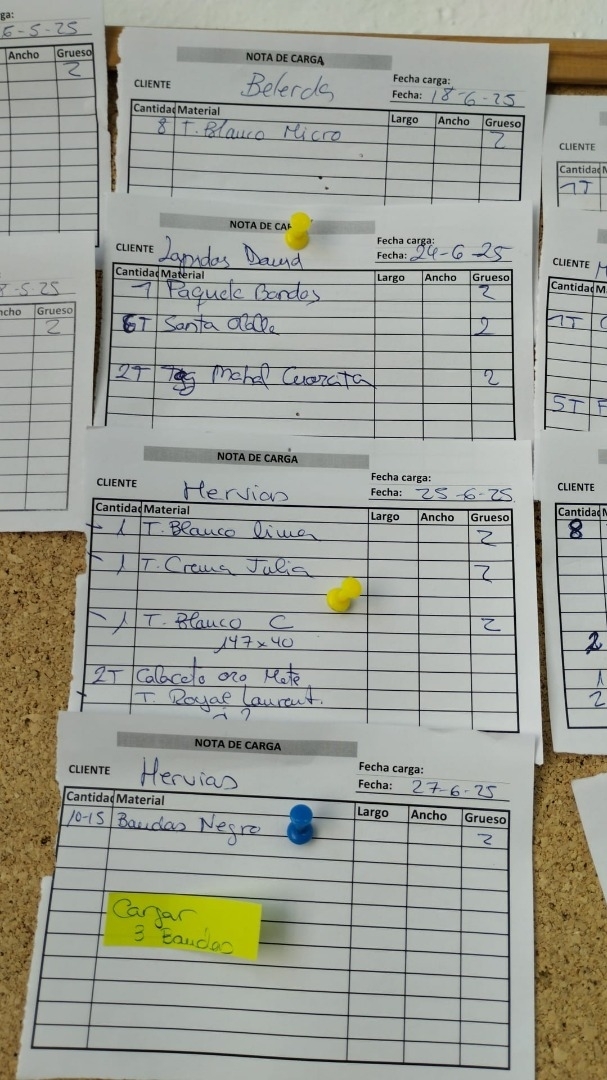 ga:
6-5-25
Ancho Grueso
2
8-5.25
ncho Grueso
2
NOTA DE CARGA
CLIENTE Belerda
Fecha carga:
Fecha: 18-6-25
Cantidad Material Largo Ancho Grueso
8 T. Blanco Micro 2
NOTA DE CAR
CLIENTE David
Fecha carga:
Fecha: 24-6-25
Cantidad Material Largo Ancho Grueso
1 Paquete Bandas 2
6T Santa 2
2T Mahal 2
NOTA DE CARGA
CLIENTE Hervias
Fecha carga:
Fecha: 25-6-25
Cantidad Material Largo Ancho Grueso
1 T. Blanco lima 2
1 T. Crema Julia 2
1 T. Blanco C 2
147x40
2T Calacata oro Mate
T. Royal Laurent.
NOTA DE CARGA
CLIENTE Hervias
Fecha carga:
Fecha: 27-6-25
Cantidad Material Largo Ancho Grueso
10-15 Bandas Negro 2
Cargar
3 Bandas
CLIENTE
Cantidad
1T
CLIENTE
Cantidad M
1T
5T
CLIENTE
Cantidad
8
2
1
2